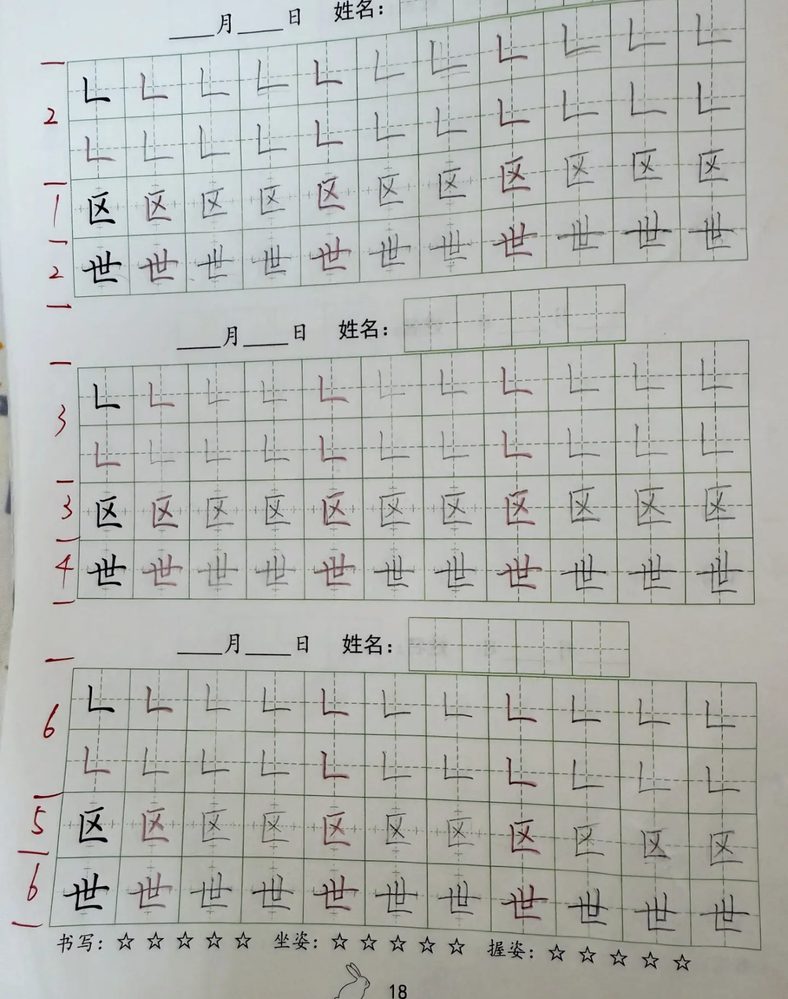 ____月____日 姓名：
2 ㄴ ㄴ ㄴ ㄴ ㄴ ㄴ ㄴ ㄴ ㄴ ㄴ ㄴ
ㄴ ㄴ ㄴ ㄴ ㄴ ㄴ ㄴ ㄴ ㄴ ㄴ ㄴ
1 区 区 区 区 区 区 区 区 区 区 区
2 世 世 世 世 世 世 世 世 世 世 世
____月____日 姓名：
3 ㄴ ㄴ ㄴ ㄴ ㄴ ㄴ ㄴ ㄴ ㄴ ㄴ ㄴ
ㄴ ㄴ ㄴ ㄴ ㄴ ㄴ ㄴ ㄴ ㄴ ㄴ ㄴ
3 区 区 区 区 区 区 区 区 区 区 区
4 世 世 世 世 世 世 世 世 世 世 世
____月____日 姓名：
6 ㄴ ㄴ ㄴ ㄴ ㄴ ㄴ ㄴ ㄴ ㄴ ㄴ ㄴ
ㄴ ㄴ ㄴ ㄴ ㄴ ㄴ ㄴ ㄴ ㄴ ㄴ ㄴ
5 区 区 区 区 区 区 区 区 区 区 区
6 世 世 世 世 世 世 世 世 世 世 世
书写：☆ ☆ ☆ ☆ ☆ 坐姿：☆ ☆ ☆ ☆ ☆ 握姿：☆ ☆ ☆ ☆ ☆
18